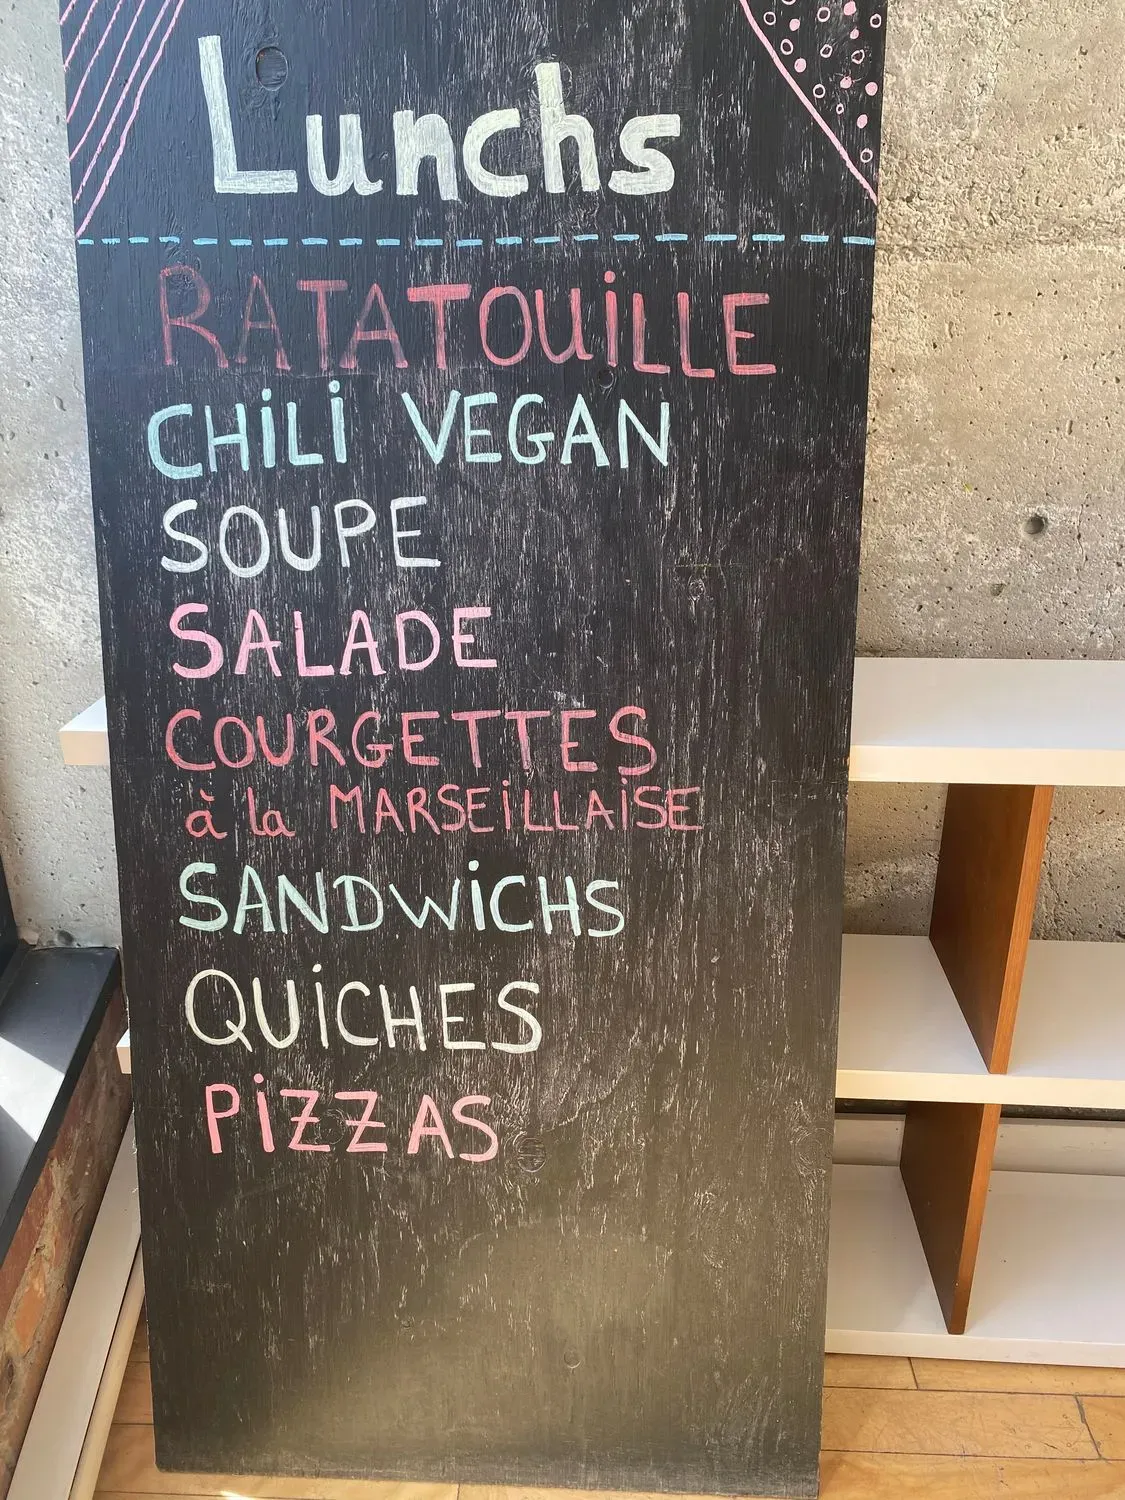 Lunchs
RATATOUiLLE
CHiLi VEGAN
SOUPE
SALADE
COURGETTES
à la MARSEiLLAiSE
SANDWiCHS
QUiCHES
PiZZAS